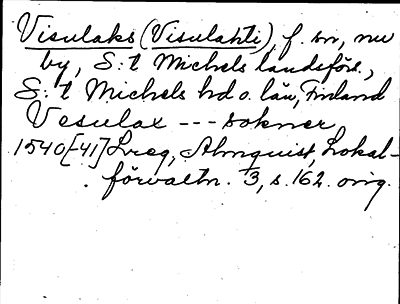 Visulaks (Visulahti), f. sn, nu
by, S:t Michels landsförs.,
S:t Michels hd o. län, Finland
Vesulax --- sokner
1540[-41] Lreg, Almquist, Lokal-
förvaltn. 3, s. 162. orig.